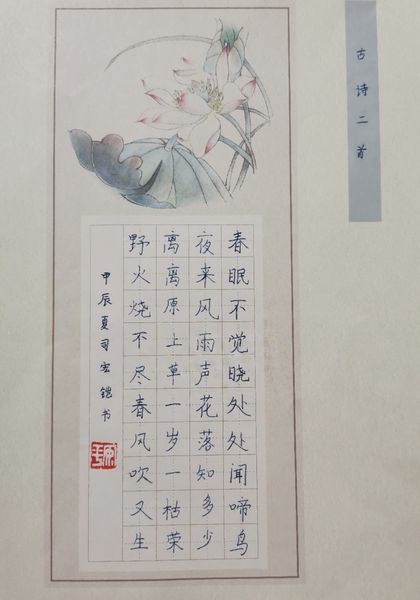 古诗二首
春眠不觉晓处处闻啼鸟
夜来风雨声花落知多少
离离原上草一岁一枯荣
野火烧不尽春风吹又生
甲辰夏司宏铠书